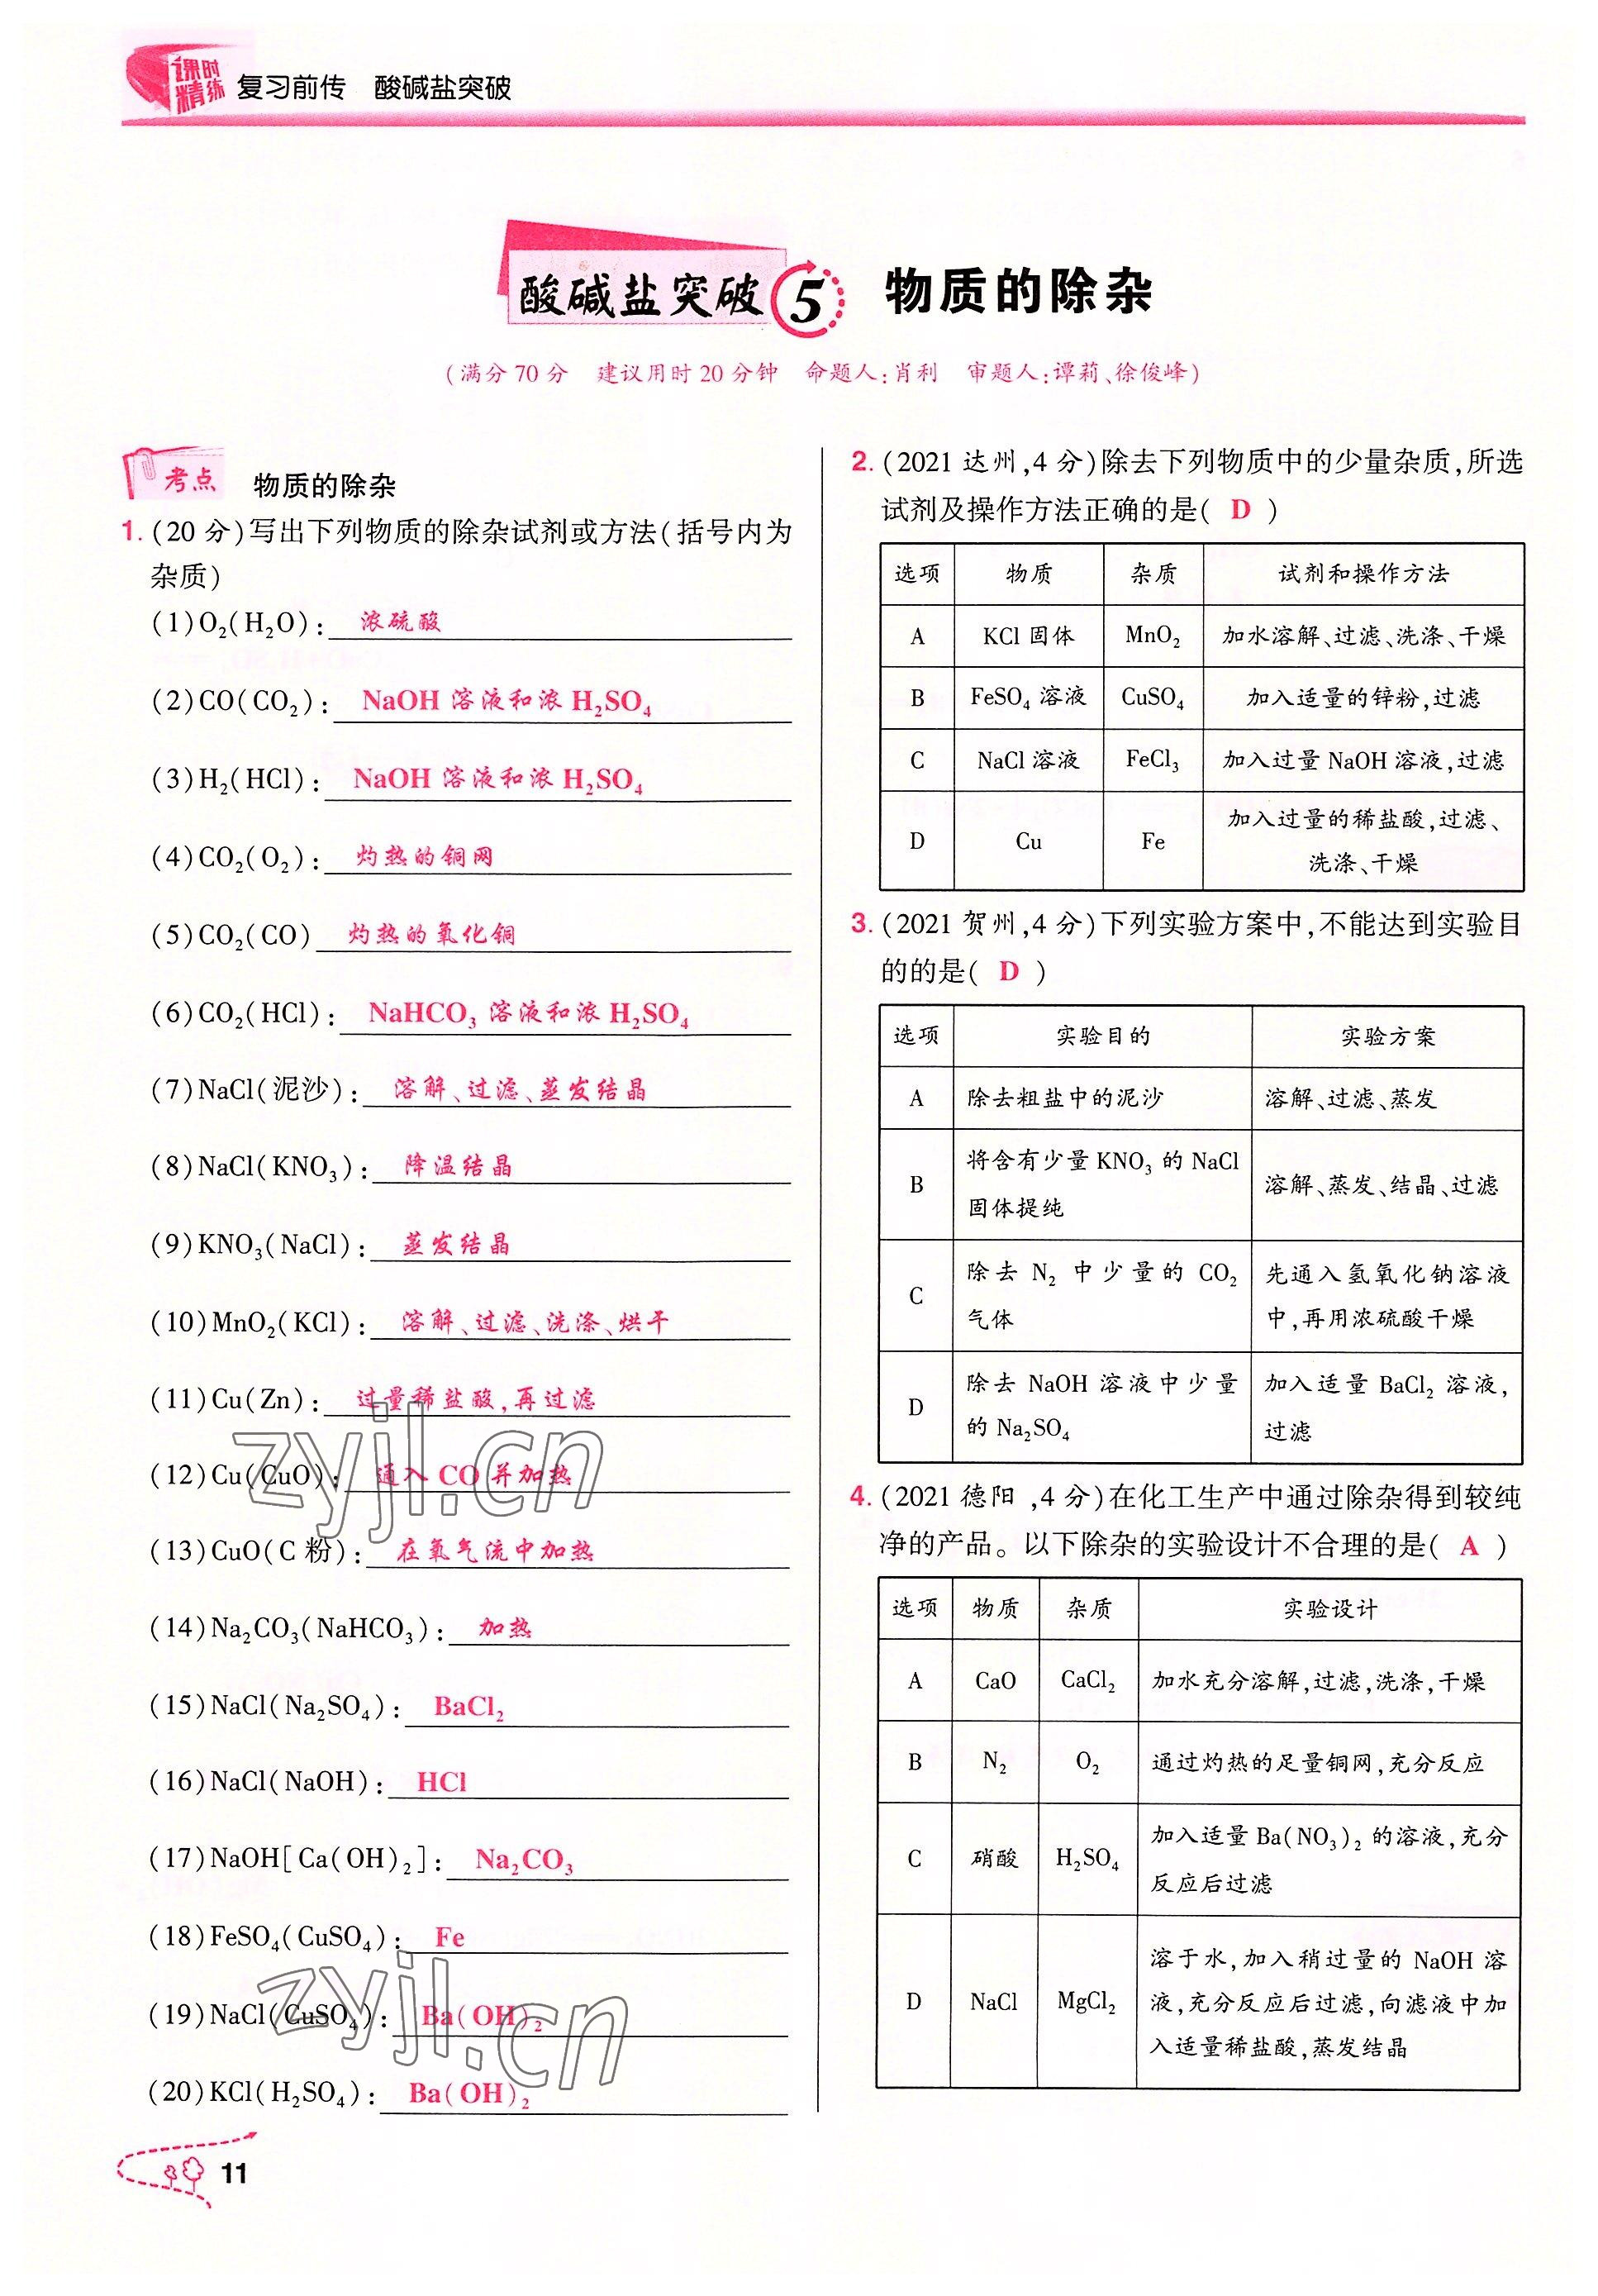 课时精练 复习前传 酸碱盐突破
酸碱盐突破 5 物质的除杂
(满分70分 建议用时20分钟 命题人:肖利 审题人:谭莉、徐俊峰)
考点 物质的除杂
1. (20分)写出下列物质的除杂试剂或方法(括号内为
杂质)
(1)O₂(H₂O): 浓硫酸
(2)CO(CO₂): NaOH 溶液和浓 H₂SO₄
(3)H₂(HCl): NaOH 溶液和浓 H₂SO₄
(4)CO₂(O₂): 灼热的铜网
(5)CO₂(CO) 灼热的氧化铜
(6)CO₂(HCl): NaHCO₃ 溶液和浓 H₂SO₄
(7)NaCl(泥沙): 溶解、过滤、蒸发结晶
(8)NaCl(KNO₃): 降温结晶
(9)KNO₃(NaCl): 蒸发结晶
(10)MnO₂(KCl): 溶解、过滤、洗涤、烘干
(11)Cu(Zn): 过量稀盐酸,再过滤
(12)Cu(CuO): 通入 CO 并加热
(13)CuO(C 粉): 在氧气流中加热
(14)Na₂CO₃(NaHCO₃): 加热
(15)NaCl(Na₂SO₄): BaCl₂
(16)NaCl(NaOH): HCl
(17)NaOH[Ca(OH)₂]: Na₂CO₃
(18)FeSO₄(CuSO₄): Fe
(19)NaCl(CuSO₄): Ba(OH)₂
(20)KCl(H₂SO₄): Ba(OH)₂
zyjl.cn
zyjl.cn
11
2. (2021 达州,4 分)除去下列物质中的少量杂质,所选
试剂及操作方法正确的是( D )
选项 物质 杂质 试剂和操作方法
A KCl 固体 MnO₂ 加水溶解、过滤、洗涤、干燥
B FeSO₄ 溶液 CuSO₄ 加入适量的锌粉,过滤
C NaCl 溶液 FeCl₃ 加入过量 NaOH 溶液,过滤
D Cu Fe 加入过量的稀盐酸,过滤、
洗涤、干燥
3. (2021 贺州,4 分)下列实验方案中,不能达到实验目
的的是( D )
选项 实验目的 实验方案
A 除去粗盐中的泥沙 溶解、过滤、蒸发
B 将含有少量 KNO₃ 的 NaCl
固体提纯 溶解、蒸发、结晶、过滤
C 除去 N₂ 中少量的 CO₂ 先通入氢氧化钠溶液
气体 中,再用浓硫酸干燥
D 除去 NaOH 溶液中少量 加入适量 BaCl₂ 溶液,
的 Na₂SO₄ 过滤
4. (2021 德阳 ,4 分)在化工生产中通过除杂得到较纯
净的产品。以下除杂的实验设计不合理的是( A )
选项 物质 杂质 实验设计
A CaO CaCl₂ 加水充分溶解,过滤,洗涤,干燥
B N₂ O₂ 通过灼热的足量铜网,充分反应
C 硝酸 H₂SO₄ 加入适量 Ba(NO₃)₂ 的溶液,充分
反应后过滤
D NaCl MgCl₂ 溶于水,加入稍过量的 NaOH 溶
液,充分反应后过滤,向滤液中加
入适量稀盐酸,蒸发结晶